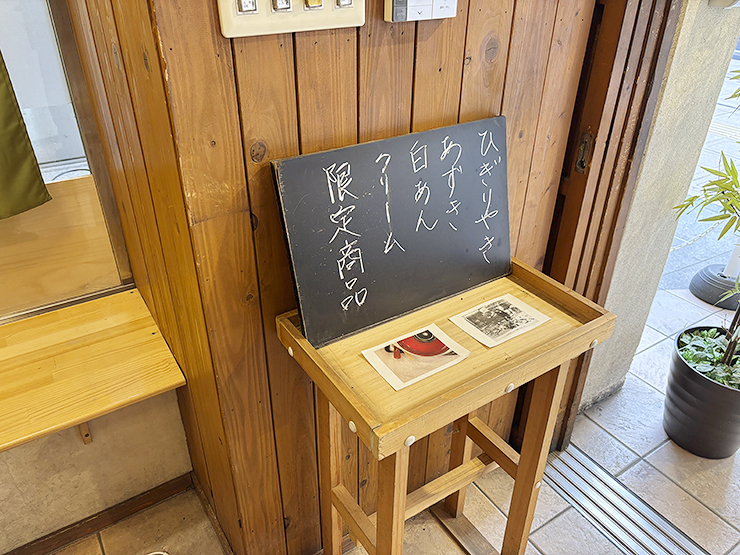 ひぎりやき
あずき
白あん
クリーム
限定商品